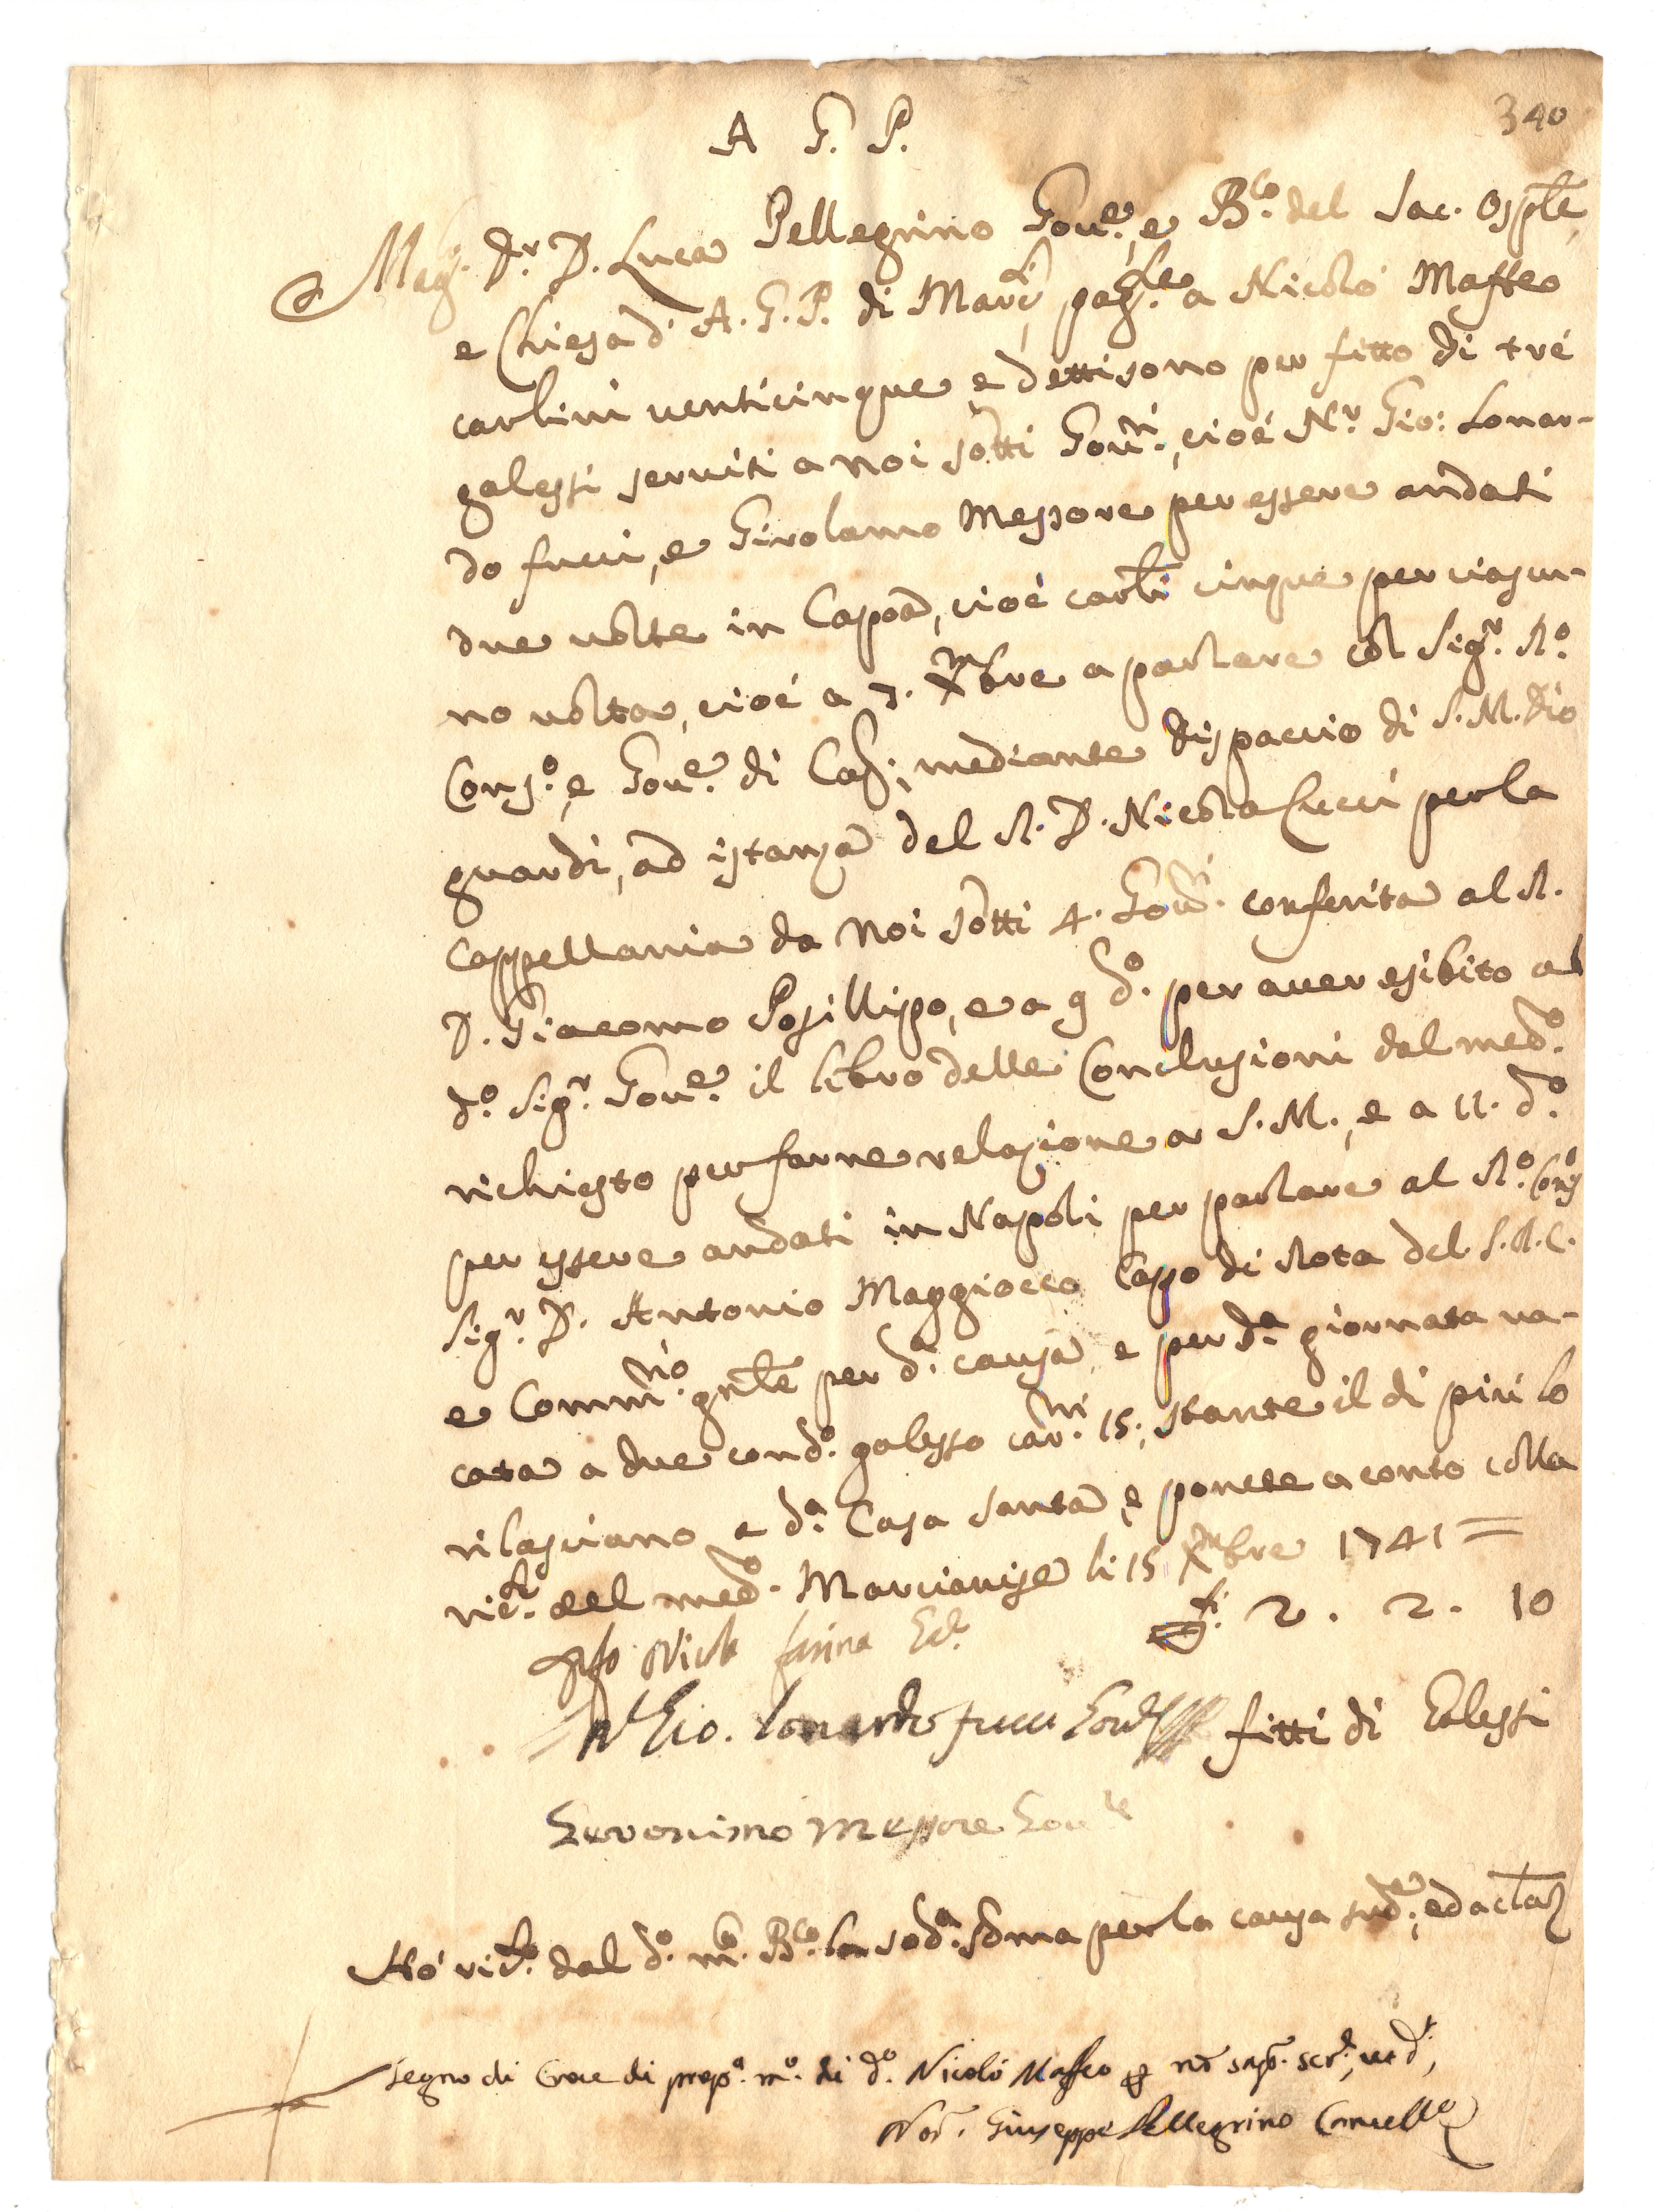 340
A G. P.
Mag. Dr. D. Luca Pellegrino Goure. e Bco. del Sac. Osple,
e Chiesa d' A. G. P. di Marci. pagle. a Nicolò Maffeo
carlini venticinque e detti sono per fitto di trè
galessi serviti a noi sotti Gouri., cioè Nr. Gio: Lonar-
do fucci, e Girolamo Messore per essere andati
due volte in Capoa, cioè carli cinque per ciascu-
na volta, cioè a 7. Xmbre a parlare col Sigr. Ro.
Conso. e Goure. di Cap., mediante dispaccio di S. M. Dio
guardi, ad istanza del R. D. Nicola Cucci per la
Cappellania da noi sotti 4. Gouri. conferita al R.
D. Giacomo Posillipo, e a 9 do. per aver esibito al
do. Sigr. Goure. il libro delle Conclusioni dal medo.
richiesto per farne relazione a S. M., e a 11. do.
per essere andati in Napoli per parlare al Ro. Conso
Sigr. D. Antonio Maggiocco Capo di Rota del S. R. C.
e Commrio. gnle per da. causa, e per da. giornata va-
cata a due con do. galesso carni. 15; stante il di più lo
rilasciano a da. Casa Santa, e ponete a conto colla
rict. del medo. Marcianise li 15 Xmbre 1741 =
2 . 2 . 10
Nicola farina
Nr Gio. Lonardo fucci Goure fitti di Galessi
Geronimo Messore Goure
Hò ricto. dal do. mo. Bco. la soda. soma per la causa sude.,
Segno di Croce di propa. mo. di do. Nicolò Maffeo
Not. Giuseppe Pellegrino